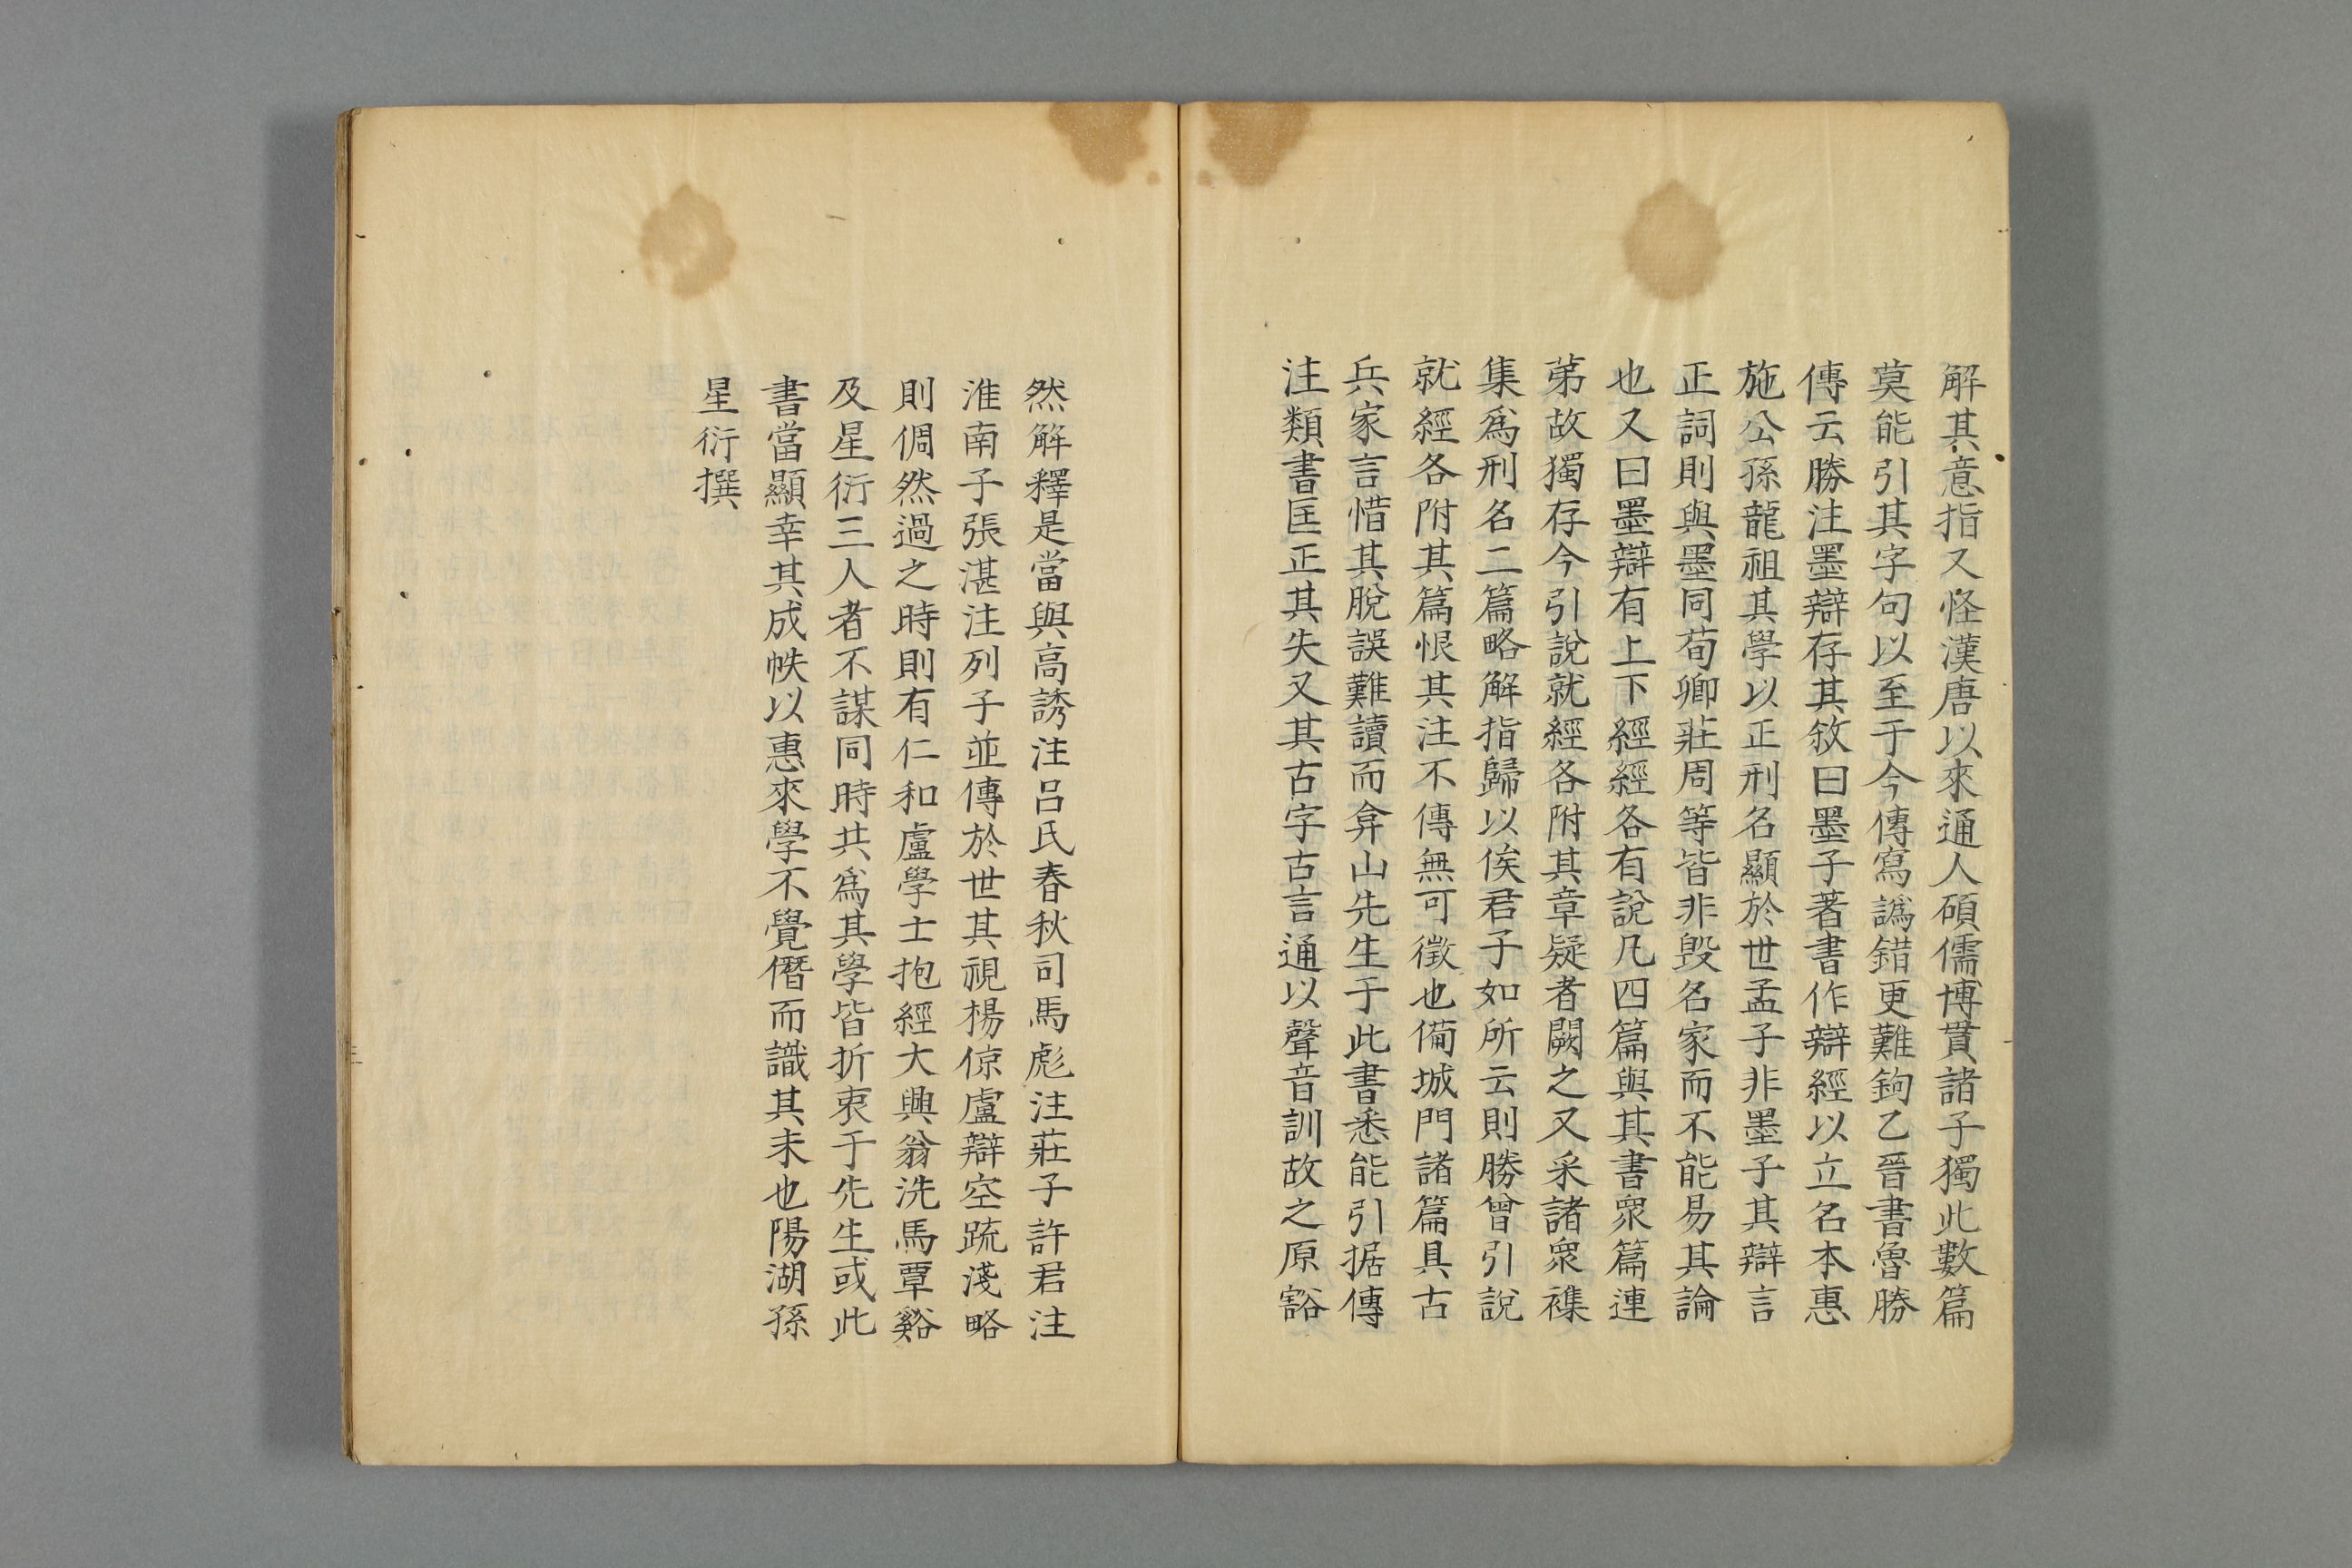 解其意指又怪漢唐以來通人碩儒博貫諸子獨此數篇
莫能引其字句以至于今傳寫譌錯更難鉤乙晉書魯勝
傳云勝注墨辯存其敘曰墨子著書作辯經以立名本惠
施公孫龍祖其學以正刑名顯於世孟子非墨子其辯言
正詞則與墨同荀卿莊周等皆非毀名家而不能易其論
也又曰墨辯有上下經經各有說凡四篇與其書衆篇連
苐故獨存今引說就經各附其章疑者闕之又采諸衆襍
集爲刑名二篇略解指歸以俟君子如所云則勝曾引說
就經各附其篇恨其注不傳無可徵也備城門諸篇具古
兵家言惜其脫誤難讀而弇山先生于此書悉能引据傳
注類書匡正其失又其古字古言通以聲音訓故之原豁
然解釋是當與高誘注呂氏春秋司馬彪注莊子許君注
淮南子張湛注列子並傳於世其視楊倞盧辯空疏淺略
則倜然過之時則有仁和盧學士抱經大興翁洗馬覃谿
及星衍三人者不謀同時共爲其學皆折衷于先生或此
書當顯幸其成帙以惠來學不覺僭而識其末也陽湖孫
星衍撰